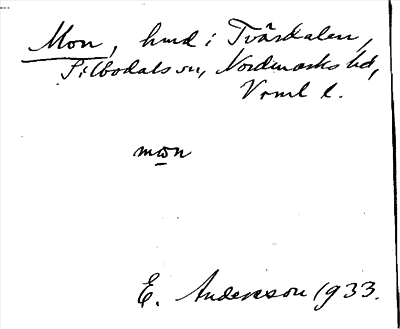 Mon, hmd i Tvärdalen,
Silbodals sn, Nordmarks hd,
Vrml l.
mon
E. Andersson 1933.